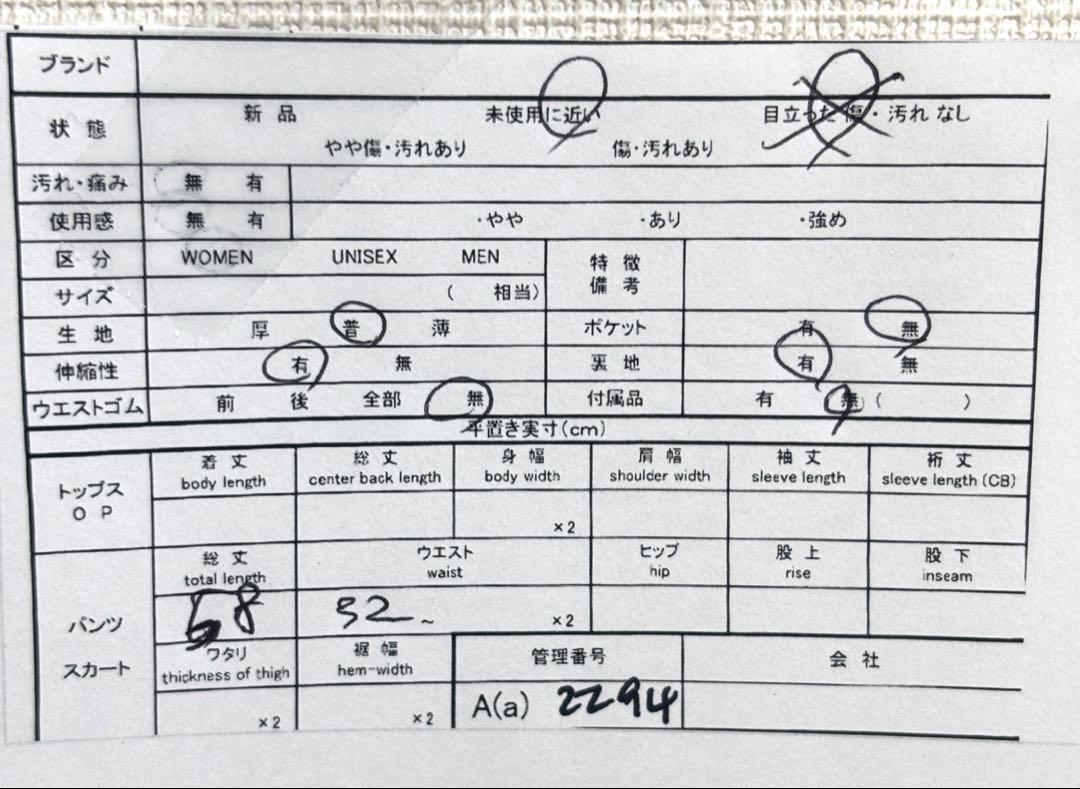 ブランド
状態 新品 未使用に近い 目立った傷・汚れなし
やや傷・汚れあり 傷・汚れあり
汚れ・痛み 無 有
使用感 無 有 ・やや ・あり ・強め
区分 WOMEN UNISEX MEN 特徴
備考
サイズ ( 相当)
生地 厚 普 薄 ポケット 有 無
伸縮性 有 無 裏地 有 無
ウエストゴム 前 後 全部 無 付属品 有 無 ( )
平置き実寸(cm)
トップス
O P
着丈 総丈 身幅 肩幅 袖丈 裄丈
body length center back length body width shoulder width sleeve length sleeve length (CB)
×2
パンツ
スカート
総丈 ウエスト ヒップ 股上 股下
total length waist hip rise inseam
58 32~ ×2
ワタリ 裾幅 管理番号 会社
thickness of thigh hem-width
×2 ×2 A(a) 2294